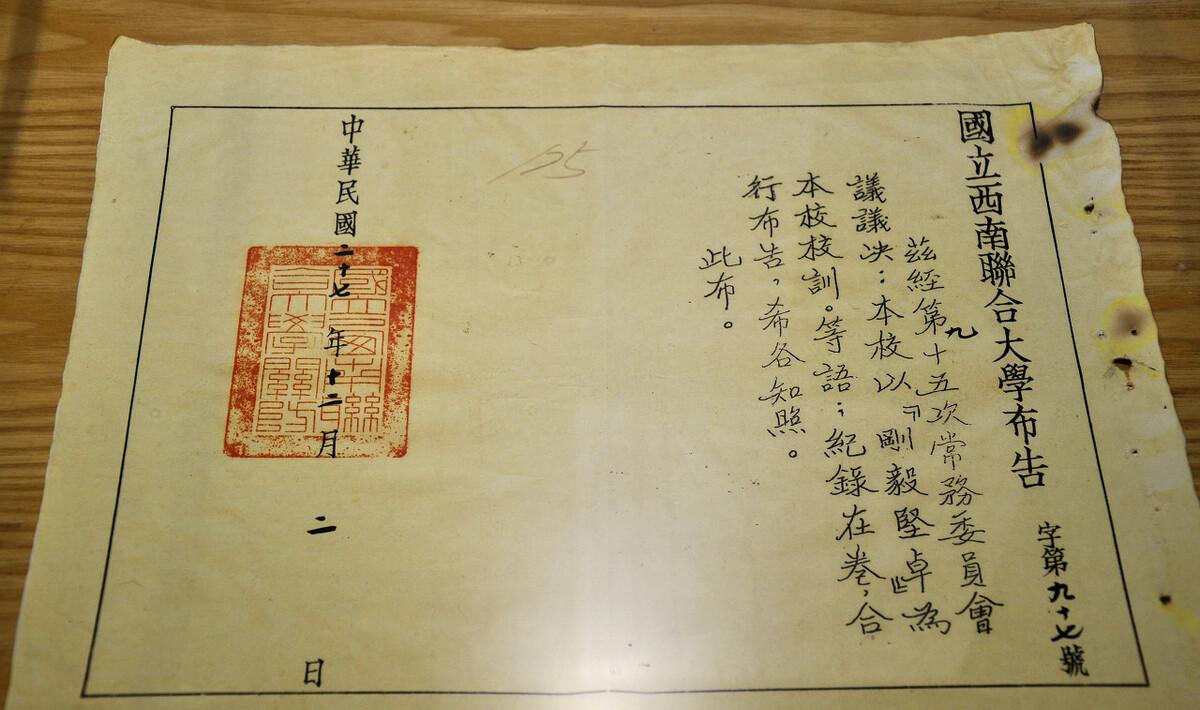 國立西南聯合大學布告
字第九十七號
茲經第九十五次常務委員會
議議決：本校以『剛毅堅卓』為
本校校訓。等語；紀錄在卷，合
行布告，希各知照。
此布。
125
中華民國二十七年十二月二日
國立西南聯
合大學關防